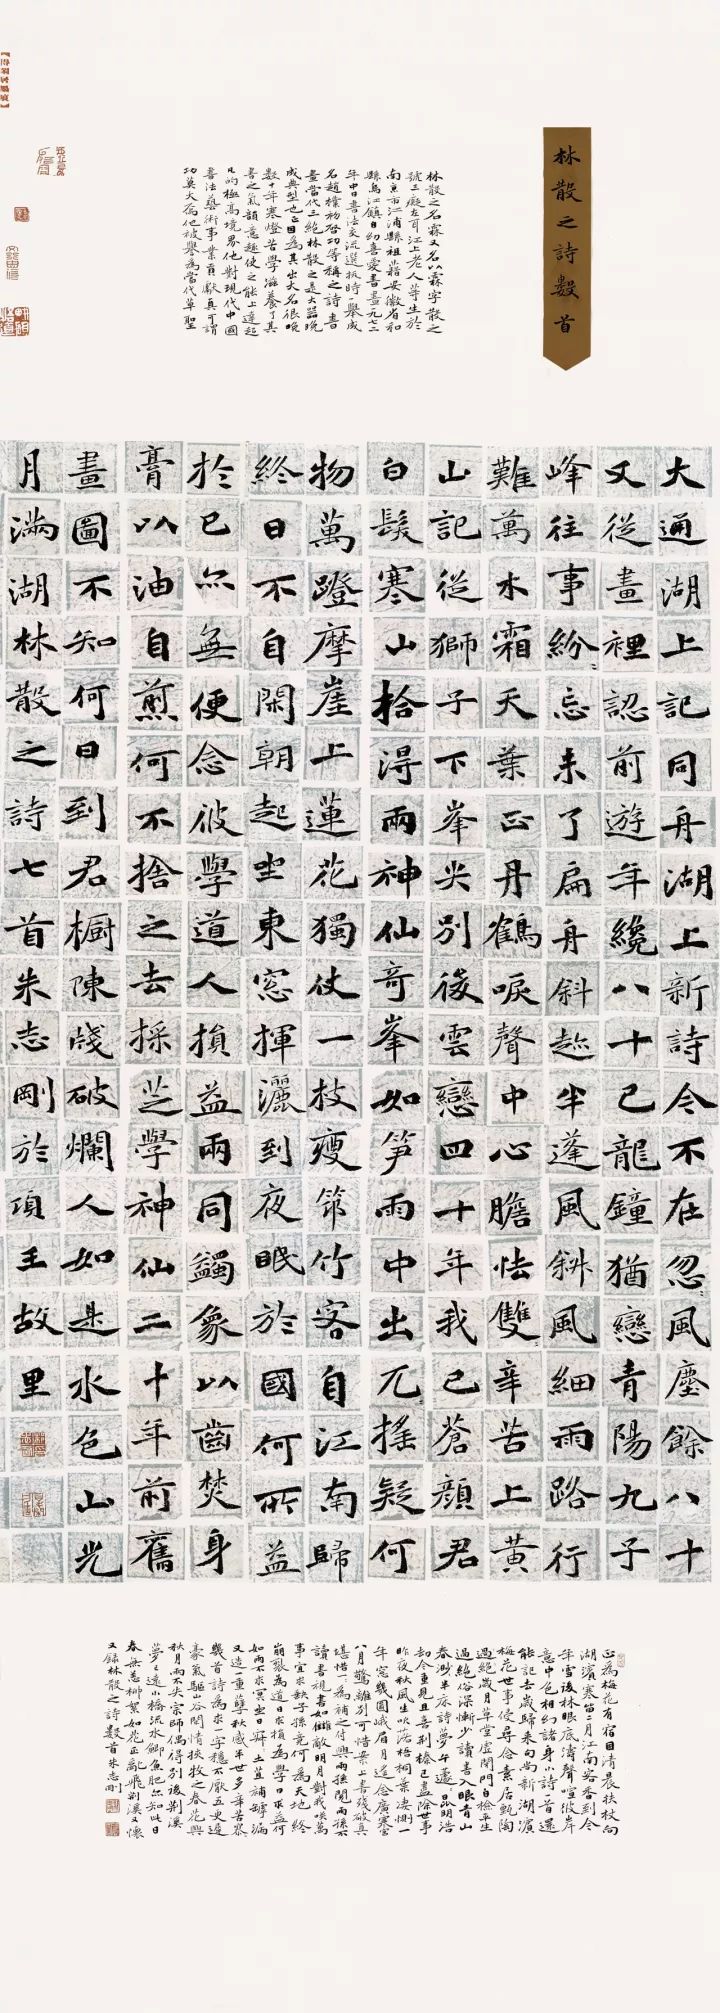 林散之詩數首
林散之名霖又名以霖字散之
號三癡左耳江上老人等生於
南京市江浦縣祖藉安徽省和
縣烏江鎮自幼喜愛書畫九七二
年中日書法交流選拔時一舉成
名趙樸初启功等稱之詩書
畫當代三絕林散之是大器晚
成典型也正因為其出大名很晚
數十年寒燈苦學滋養了其
書之氣韻意趣使之能上達超
凡的極高境界他對現代中國
書法藝術事業貢獻真可謂
功莫大焉他被譽為當代草聖
大通湖上記同舟湖上新詩令不在忽風塵餘八十
又從畫裡認前遊年纔八十已龍鐘猶戀青陽九子
峰往事紛忘未了扁舟斜趂半蓬風斜風細雨路行
難萬水霜天葉正丹鶴唳聲中心膽怯雙辛苦上黃
山記從獅子下峯尖別後雲戀四十年我已蒼顏君
白髮寒山拾得兩神仙奇峯如笋雨中出兀搖疑何
物萬蹬摩崖上蓮花獨仗一枝瘦筇竹客自江南歸
終日不自閑朝起坐東窓揮灑到夜眠於國何所益
於已亦無便念彼學道人損益兩同蠲象以齒焚身
膏以油自煎何不捨之去採芝學神仙二十年前舊
畫圖不知何日到君櫥陳牋破爛人如是水色山光
月滿湖林散之詩七首朱志剛於項王故里
正為梅花有宿因清晨扶杖向
湖濱寒笛二月江南客香到今
年雪後林眼底濤聲喧彼岸
意中色相幻諸身小詩首還
能記去歲歸來句尚新湖濱
梅花世事侵尋念素居甄陶
過絕歲月草堂虛閉門自檢平生
過絕俗深慚少讀書入眼青山
春渺半床詩夢午蘧昆明浩
劫今重見且喜荆榛已盡除世事
昨夜秋風生吹落梧桐葉淒惻一
年窓幾圓峨眉月遙念廣寒宮
八月驚離別可惜案上書殘破真
堪惜一為補之付與兩孫閱兩孫不
讀書視書如雠敵明月對我嘆萬
事宜求缺子孫竟何為天地終
崩裂為道日求損為學日求益何
如兩不求冥坐日辟土苴補罅漏
又造一重孽秋感半世多辛苦寒
幾首詩為求一字穩不厭五更遲
豪氣驅山谷閑情挾牧之春花與
秋月而不失宗師偶得別後荆溪
夢之遠小橋流水鯽魚肥亦知此日
春無恙柳絮如花正亂飛荆溪又懷
又錄林散之詩數首朱志剛